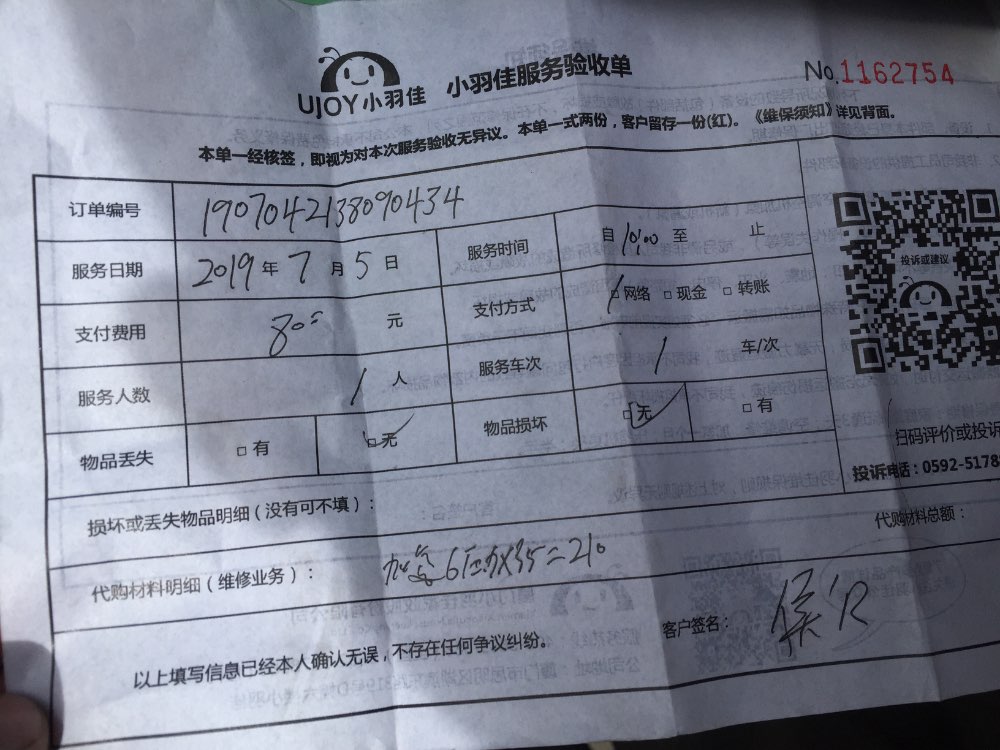 UJOY小羽佳 小羽佳服务验收单 No.1162754
本单一经核签，即视为对本次服务验收无异议。本单一式两份，客户留存一份(红)。《维保须知》详见背面。
订单编号 1907042138090434
服务日期 2019年7月5日 服务时间 自10:00至 止
投诉或建议
支付费用 80 元 支付方式 □网络 □现金 □转账
服务人数 1人 服务车次 1 车/次
物品丢失 □有 □无 物品损坏 □无 □有
扫码评价或投诉
投诉电话：0592-5178
损坏或丢失物品明细（没有可不填）：
代购材料总额：
代购材料明细（维修业务）： 加氟6压力X35=210
客户签名： 侯'R
以上填写信息已经本人确认无误，不存在任何争议纠纷。